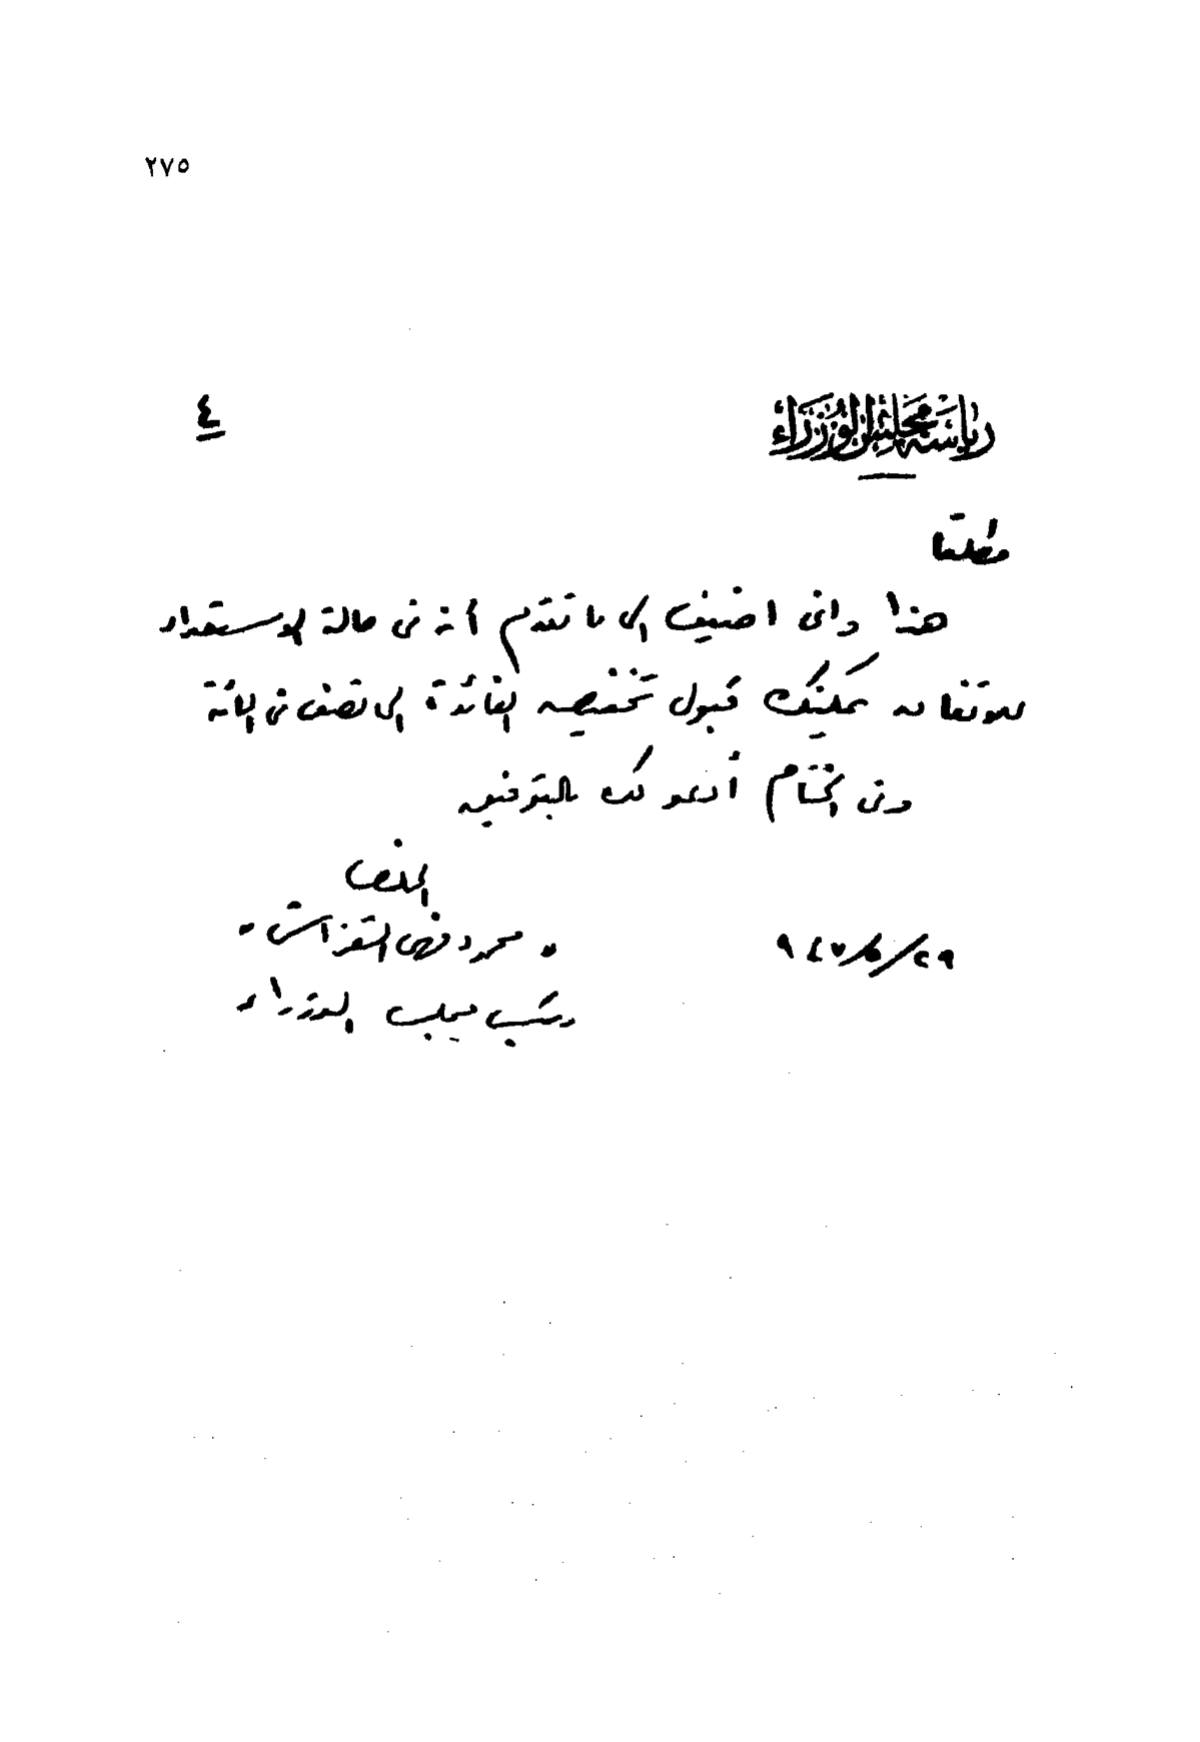 ٢٧٥
رياسة مجلس الوزراء
٤
مطلقا
هذا وانى اضيف الى ما تقدم أنه فى حالة الاستعداد
للاتفاق يمكنك قبول تخفيض الفائدة الى نصف فى المائة
وفى الختام أدعو لك بالتوفيق
المخلص
" محمود فهمى النقراشى "
رئيس مجلس الوزراء
٢٩/٥/٩٤٧